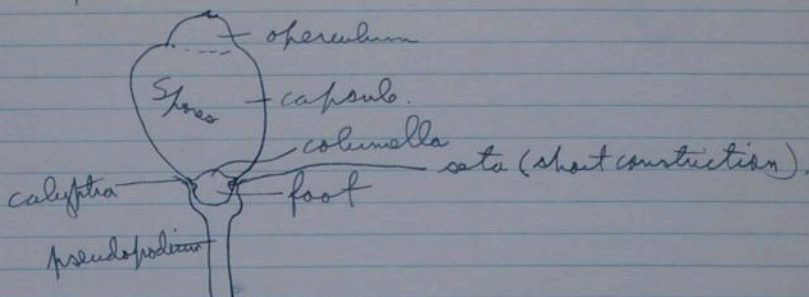 operculum
Spores
capsule.
columella
seta (short constriction).
calyptra
foot
pseudopodium